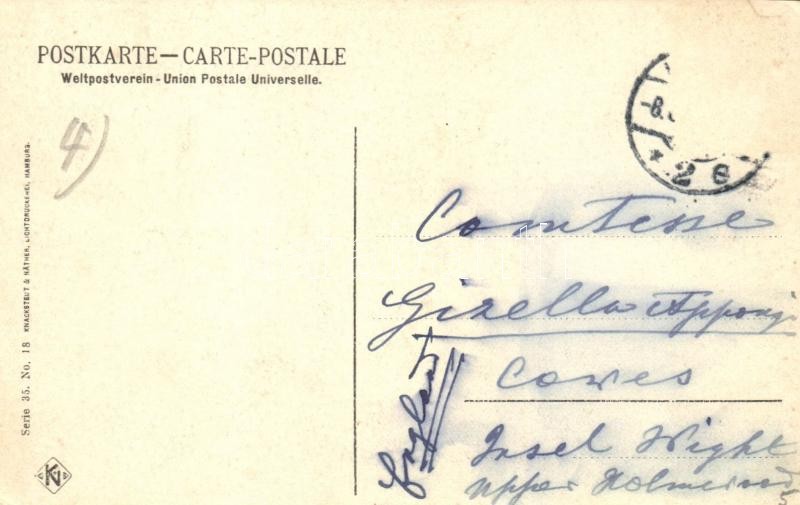 POSTKARTE — CARTE-POSTALE
Weltpostverein - Union Postale Universelle.
4)
-8.
* 2 e
Comtesse
Gizella Apponyi
Cowes
Insel Wight
Upper Holmewood
England
5
Serie 35. No. 18 KNACKSTEDT & NÄTHER, LICHTDRUCKEREI, HAMBURG.
KN